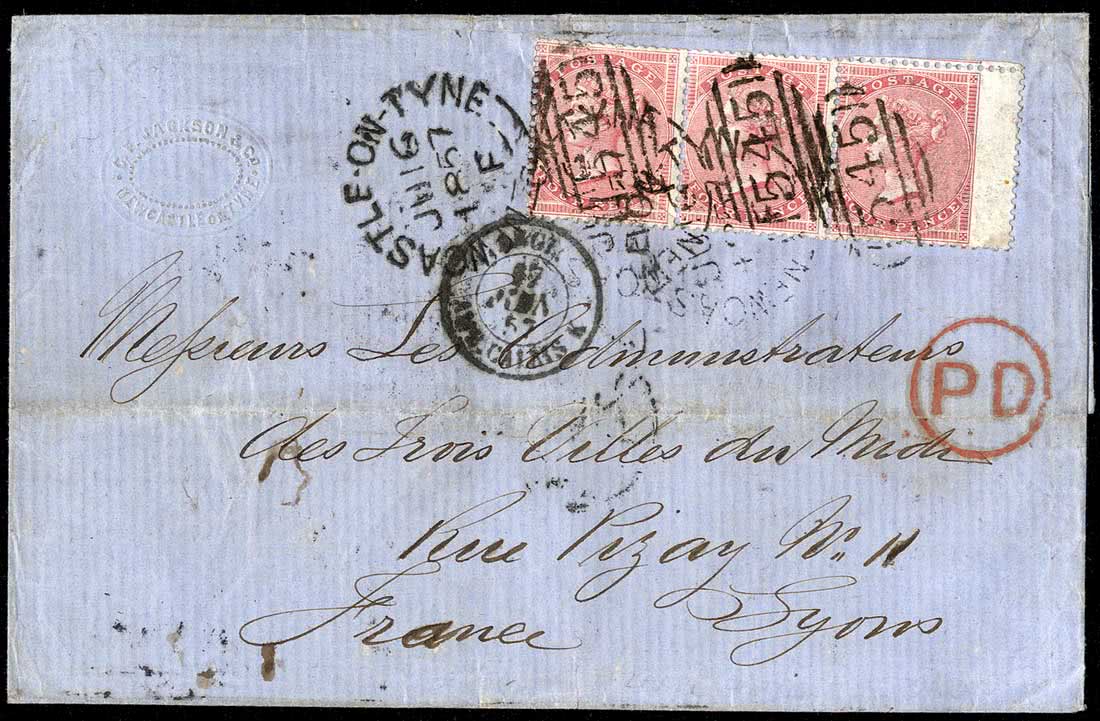 JACKSON & CO.
NEWCASTLE ON TYNE
ASTLE-ON-TYNE
JU 16
1857
F
POSTAGE
POSTAGE
POSTAGE
545
545
545
PENCE
CALAIS
P D
Messieurs Les Administrateurs
des Trois Villes du Midi
Rue Pizay No. 11
Lyons
France